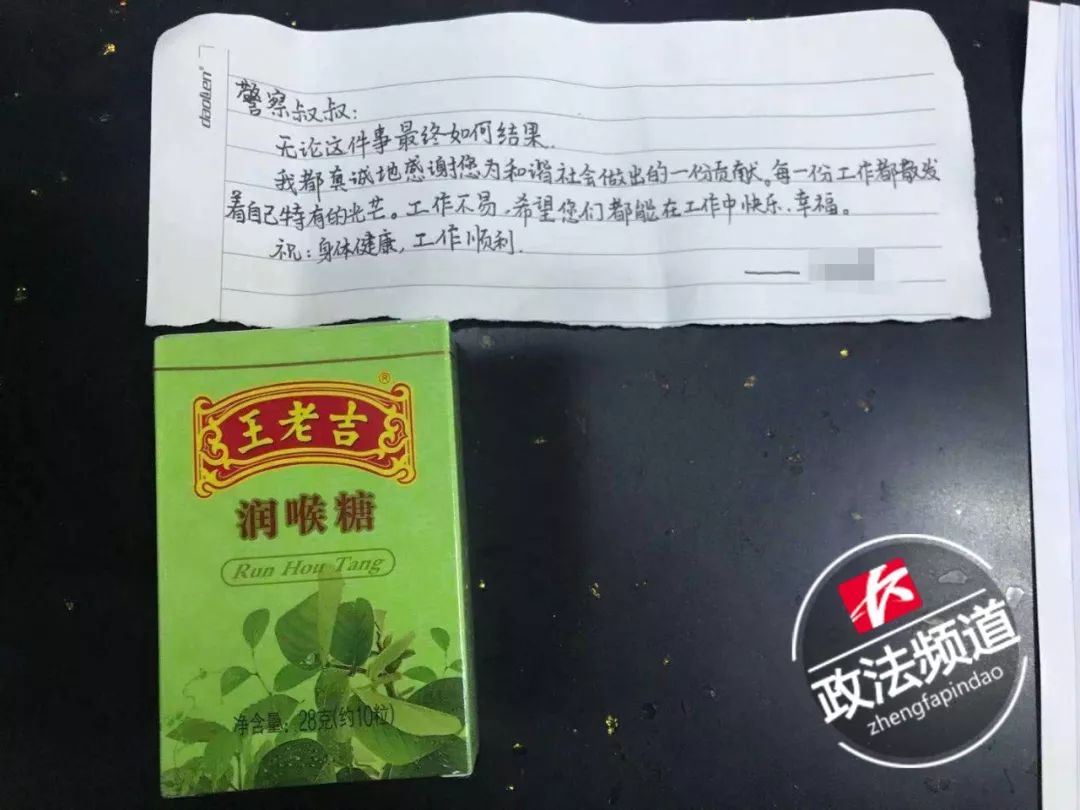 daolen®
警察叔叔:
无论这件事最终如何结果.
我都真诚地感谢您为和谐社会做出的一份贡献。每一份工作都散发
着自己特有的光芒。工作不易,希望您们都能在工作中快乐、幸福。
祝:身体健康,工作顺利.
王老吉®
润喉糖
Run Hou Tang
净含量:28克(约10粒)
政法频道
zhengfapindao